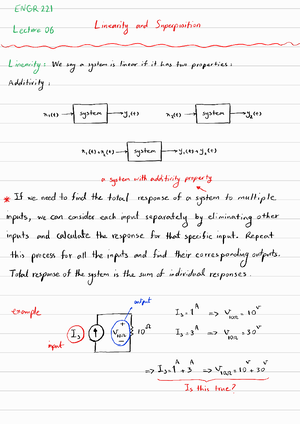 ENGR 221
Lecture 06
Linearity and Superposition
Linearity: We say a system is linear if it has two properties:
Additivity:
x₁(t) → system → y₁(t)    x₂(t) → system → y₂(t)
x₁(t)+x₂(t) → system → y₁(t)+y₂(t)
a system with additivity property
* If we need to find the total response of a system to multiple
inputs, we can consider each input separately by eliminating other
inputs and calculate the response for that specific input. Repeat
this process for all the inputs and find their corresponding outputs.
Total response of the system is the sum of individual responses.
example
output
Is
input
V10Ω
10Ω
Is=1A => V10Ω = 10V
Is=3A => V10Ω = 30V
=> Is=1A+3A => V10Ω = 10V+30V
Is this true?